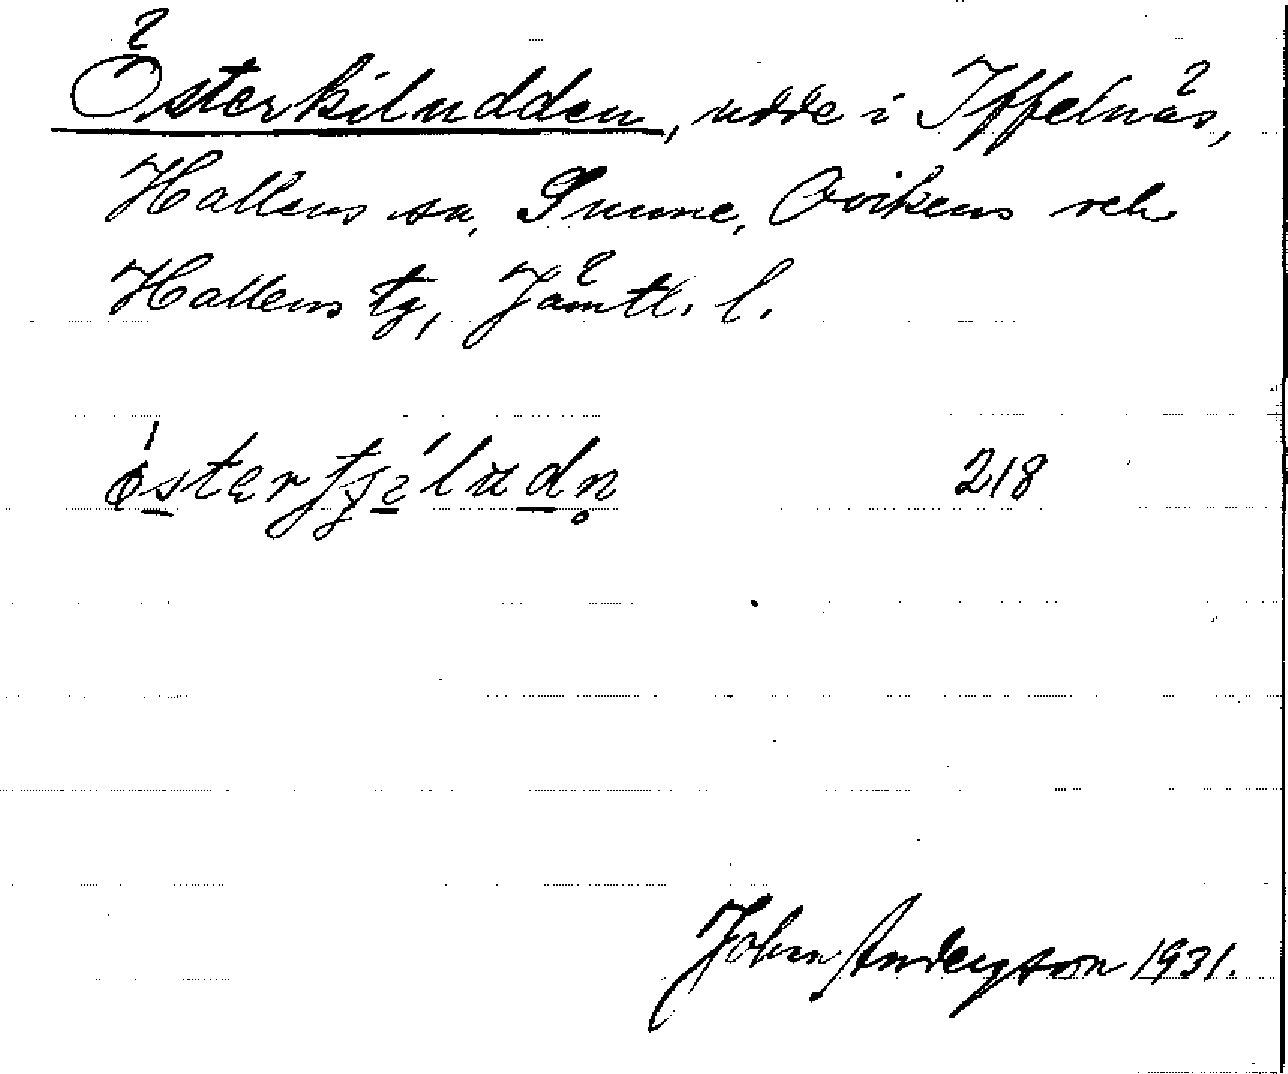 Österkiludden, udde i Yffelnäs,
Hallens sn, Sunne, Ovikens och
Hallens tg, Jämtl. l.
218
John Anderson 1931.